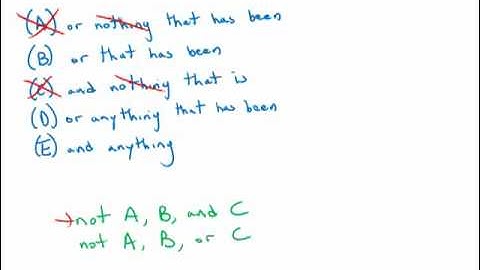 (A) or nothing that has been
(B) or that has been
(C) and nothing that is
(D) or anything that has been
(E) and anything
→not A, B, and C
not A, B, or C